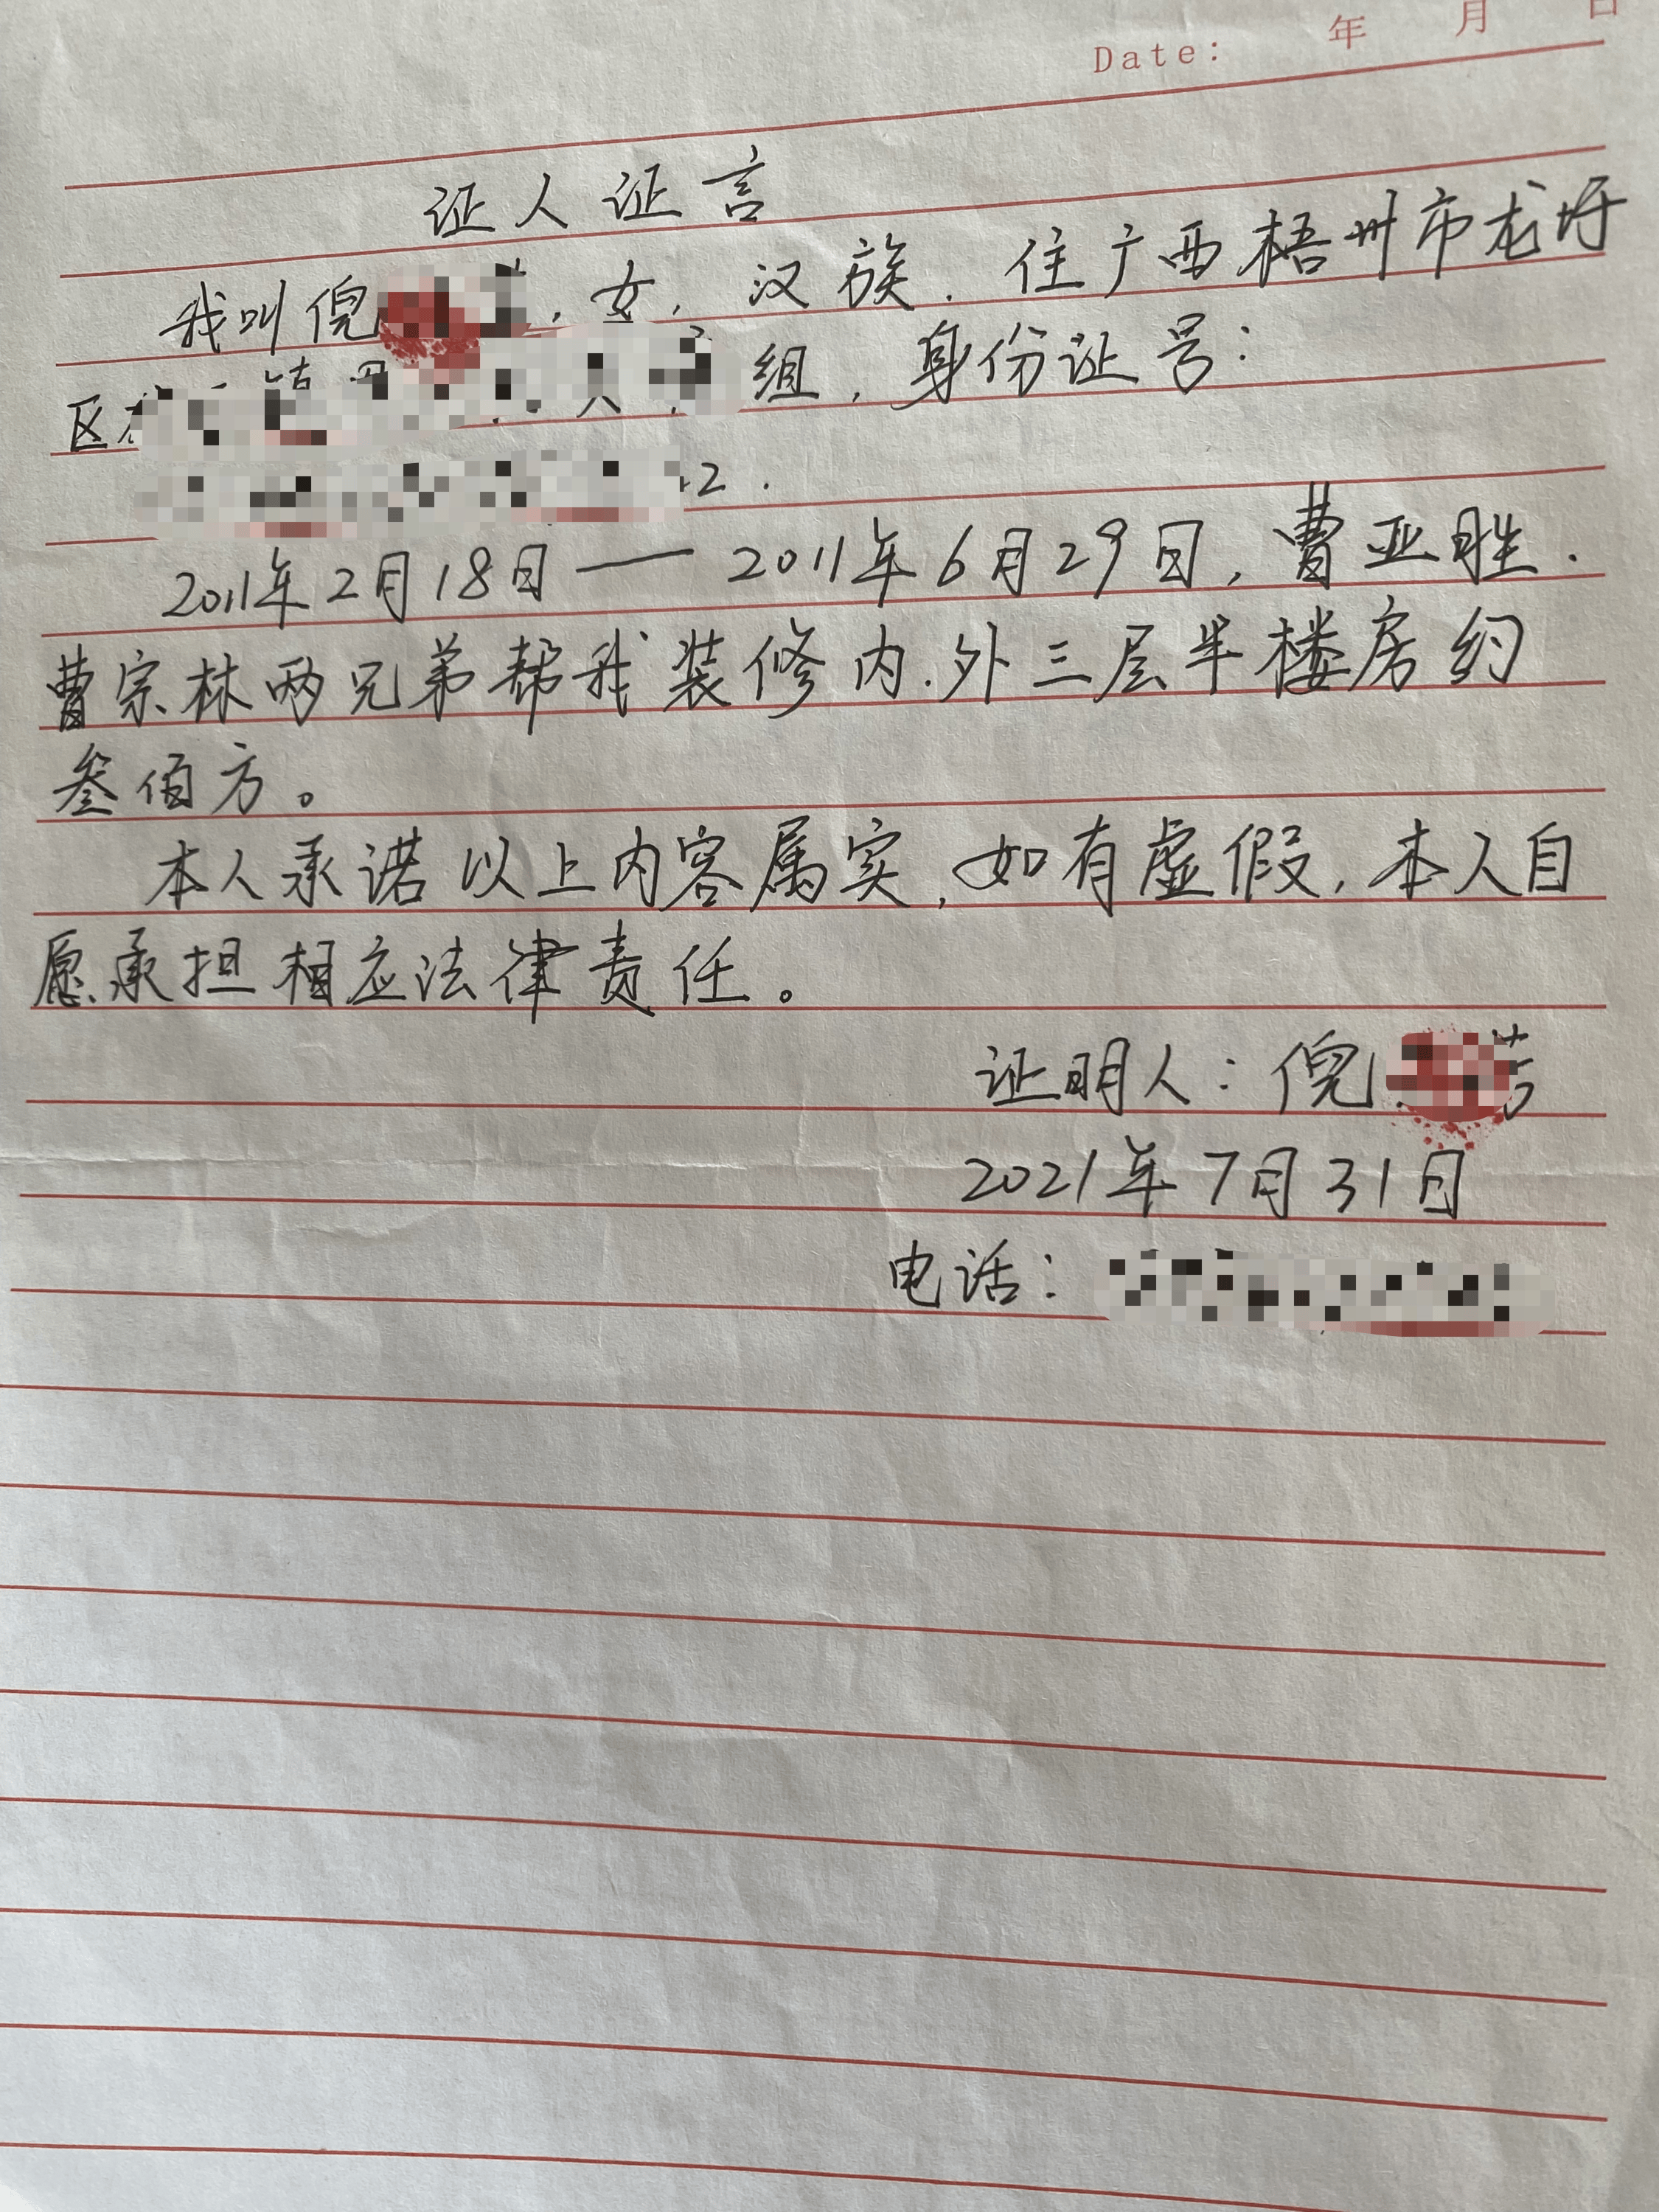 Date: 年 月 日
证人证言
我叫倪，女，汉族．住广西梧州市龙圩
区 组，身份证号：
2．
2011年2月18日——2011年6月29日，曹亚胜．
曹宗林两兄弟帮我装修内．外三层半楼房约
叁佰方。
本人承诺以上内容属实，如有虚假，本人自
愿承担相应法律责任。
证明人：倪
2021年7月31日
电话：